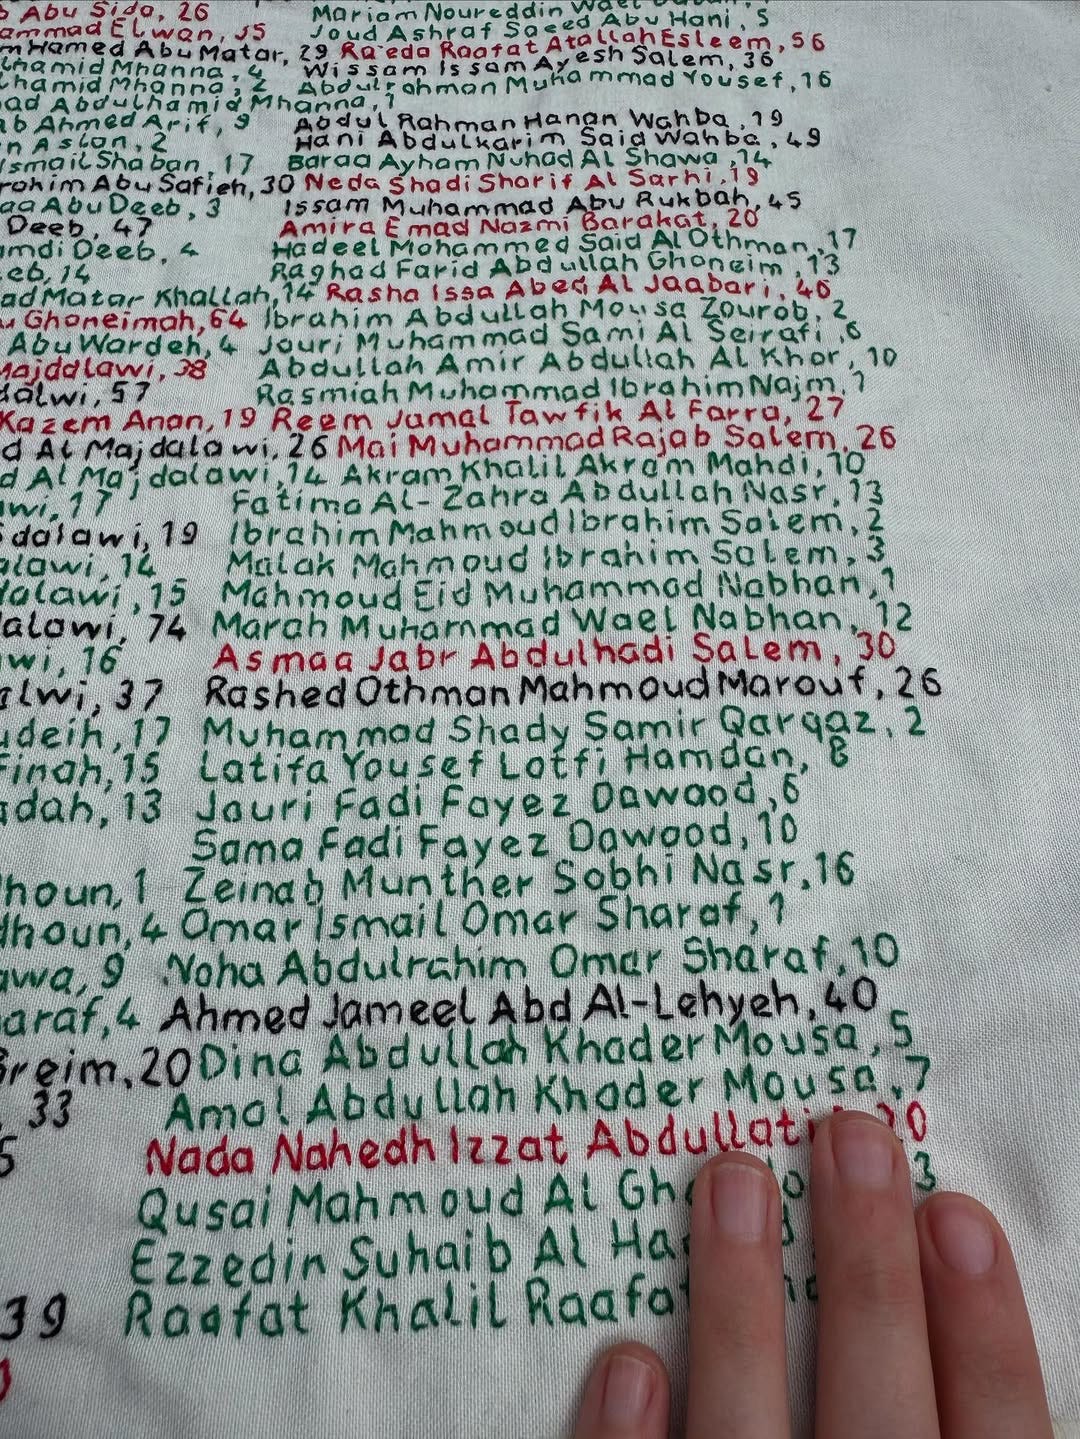 Abu Sido, 26 Mariam Noureddin Wael
ammad Elwan, 35 Joud Ashraf Saeed Abu Hani, 5
m Hamed Abu Matar, 29 Raeda Raafat Atallah Esleem, 56
lhamid Mhanna, 4 Wissam Issam Ayesh Salem, 36
lhamid Mhanna, 2 Abdulrahman Muhammad Yousef, 16
ad Abdulhamid Mhanna, 1
ab Ahmed Arif, 9 Abdul Rahman Hanan Wahba, 19
n Aslan, 2 Hani Abdulkarim Said Wahba, 49
Ismail Shaban, 17 Baraa Ayham Nuhad Al Shawa, 14
rahim Abu Safieh, 30 Neda Shadi Sharif Al Sarhi, 19
aa Abu Deeb, 3 Issam Muhammad Abu Rukbah, 45
Deeb, 47 Amira Emad Nazmi Barakat, 20
amdi Deeb, 4 Hadeel Mohammed Said Al Othman, 17
eeb, 14 Raghad Farid Abdullah Ghoneim, 13
ad Matar Khallah, 14 Rasha Issa Abed Al Jaabari, 46
Ghoneimah, 64 Ibrahim Abdullah Mousa Zourob, 2
Abu Wardeh, 4 Jouri Muhammad Sami Al Seirafi, 6
Majddlawi, 38 Abdullah Amir Abdullah Al Khor, 10
dalwi, 57 Rasmiah Muhammad Ibrahim Najm, 7
Kazem Anan, 19 Reem Jamal Tawfik Al Farra, 27
d Al Majdalawi, 26 Mai Muhammad Rajab Salem, 26
d Al Majdalawi, 14 Akram Khalil Akram Mahdi, 10
awi, 17 Fatima Al-Zahra Abdullah Nasr, 13
dalawi, 19 Ibrahim Mahmoud Ibrahim Salem, 2
alawi, 14 Malak Mahmoud Ibrahim Salem, 3
dalawi, 15 Mahmoud Eid Muhammad Nabhan, 1
alawi, 74 Marah Muhammad Wael Nabhan, 12
wi, 16 Asmaa Jabr Abdulhadi Salem, 30
alwi, 37 Rashed Othman Mahmoud Marouf, 26
udeih, 17 Muhammad Shady Samir Qarqaz, 2
Finah, 15 Latifa Yousef Lotfi Hamdan, 8
adah, 13 Jouri Fadi Fayez Dawood, 6
Sama Fadi Fayez Dawood, 10
lhoun, 1 Zeinab Munther Sobhi Nasr, 16
lhoun, 4 Omar Ismail Omar Sharaf, 1
awa, 9 Noha Abdulrahim Omar Sharaf, 10
araf, 4 Ahmed Jameel Abd Al-Lehyeh, 40
Breim, 20 Dina Abdullah Khader Mousa, 5
33 Amal Abdullah Khader Mousa, 7
5 Nada Nahedh Izzat Abdullati
Qusai Mahmoud Al Gh 3
Ezzedin Suhaib Al Ha
39 Raafat Khalil Raafat